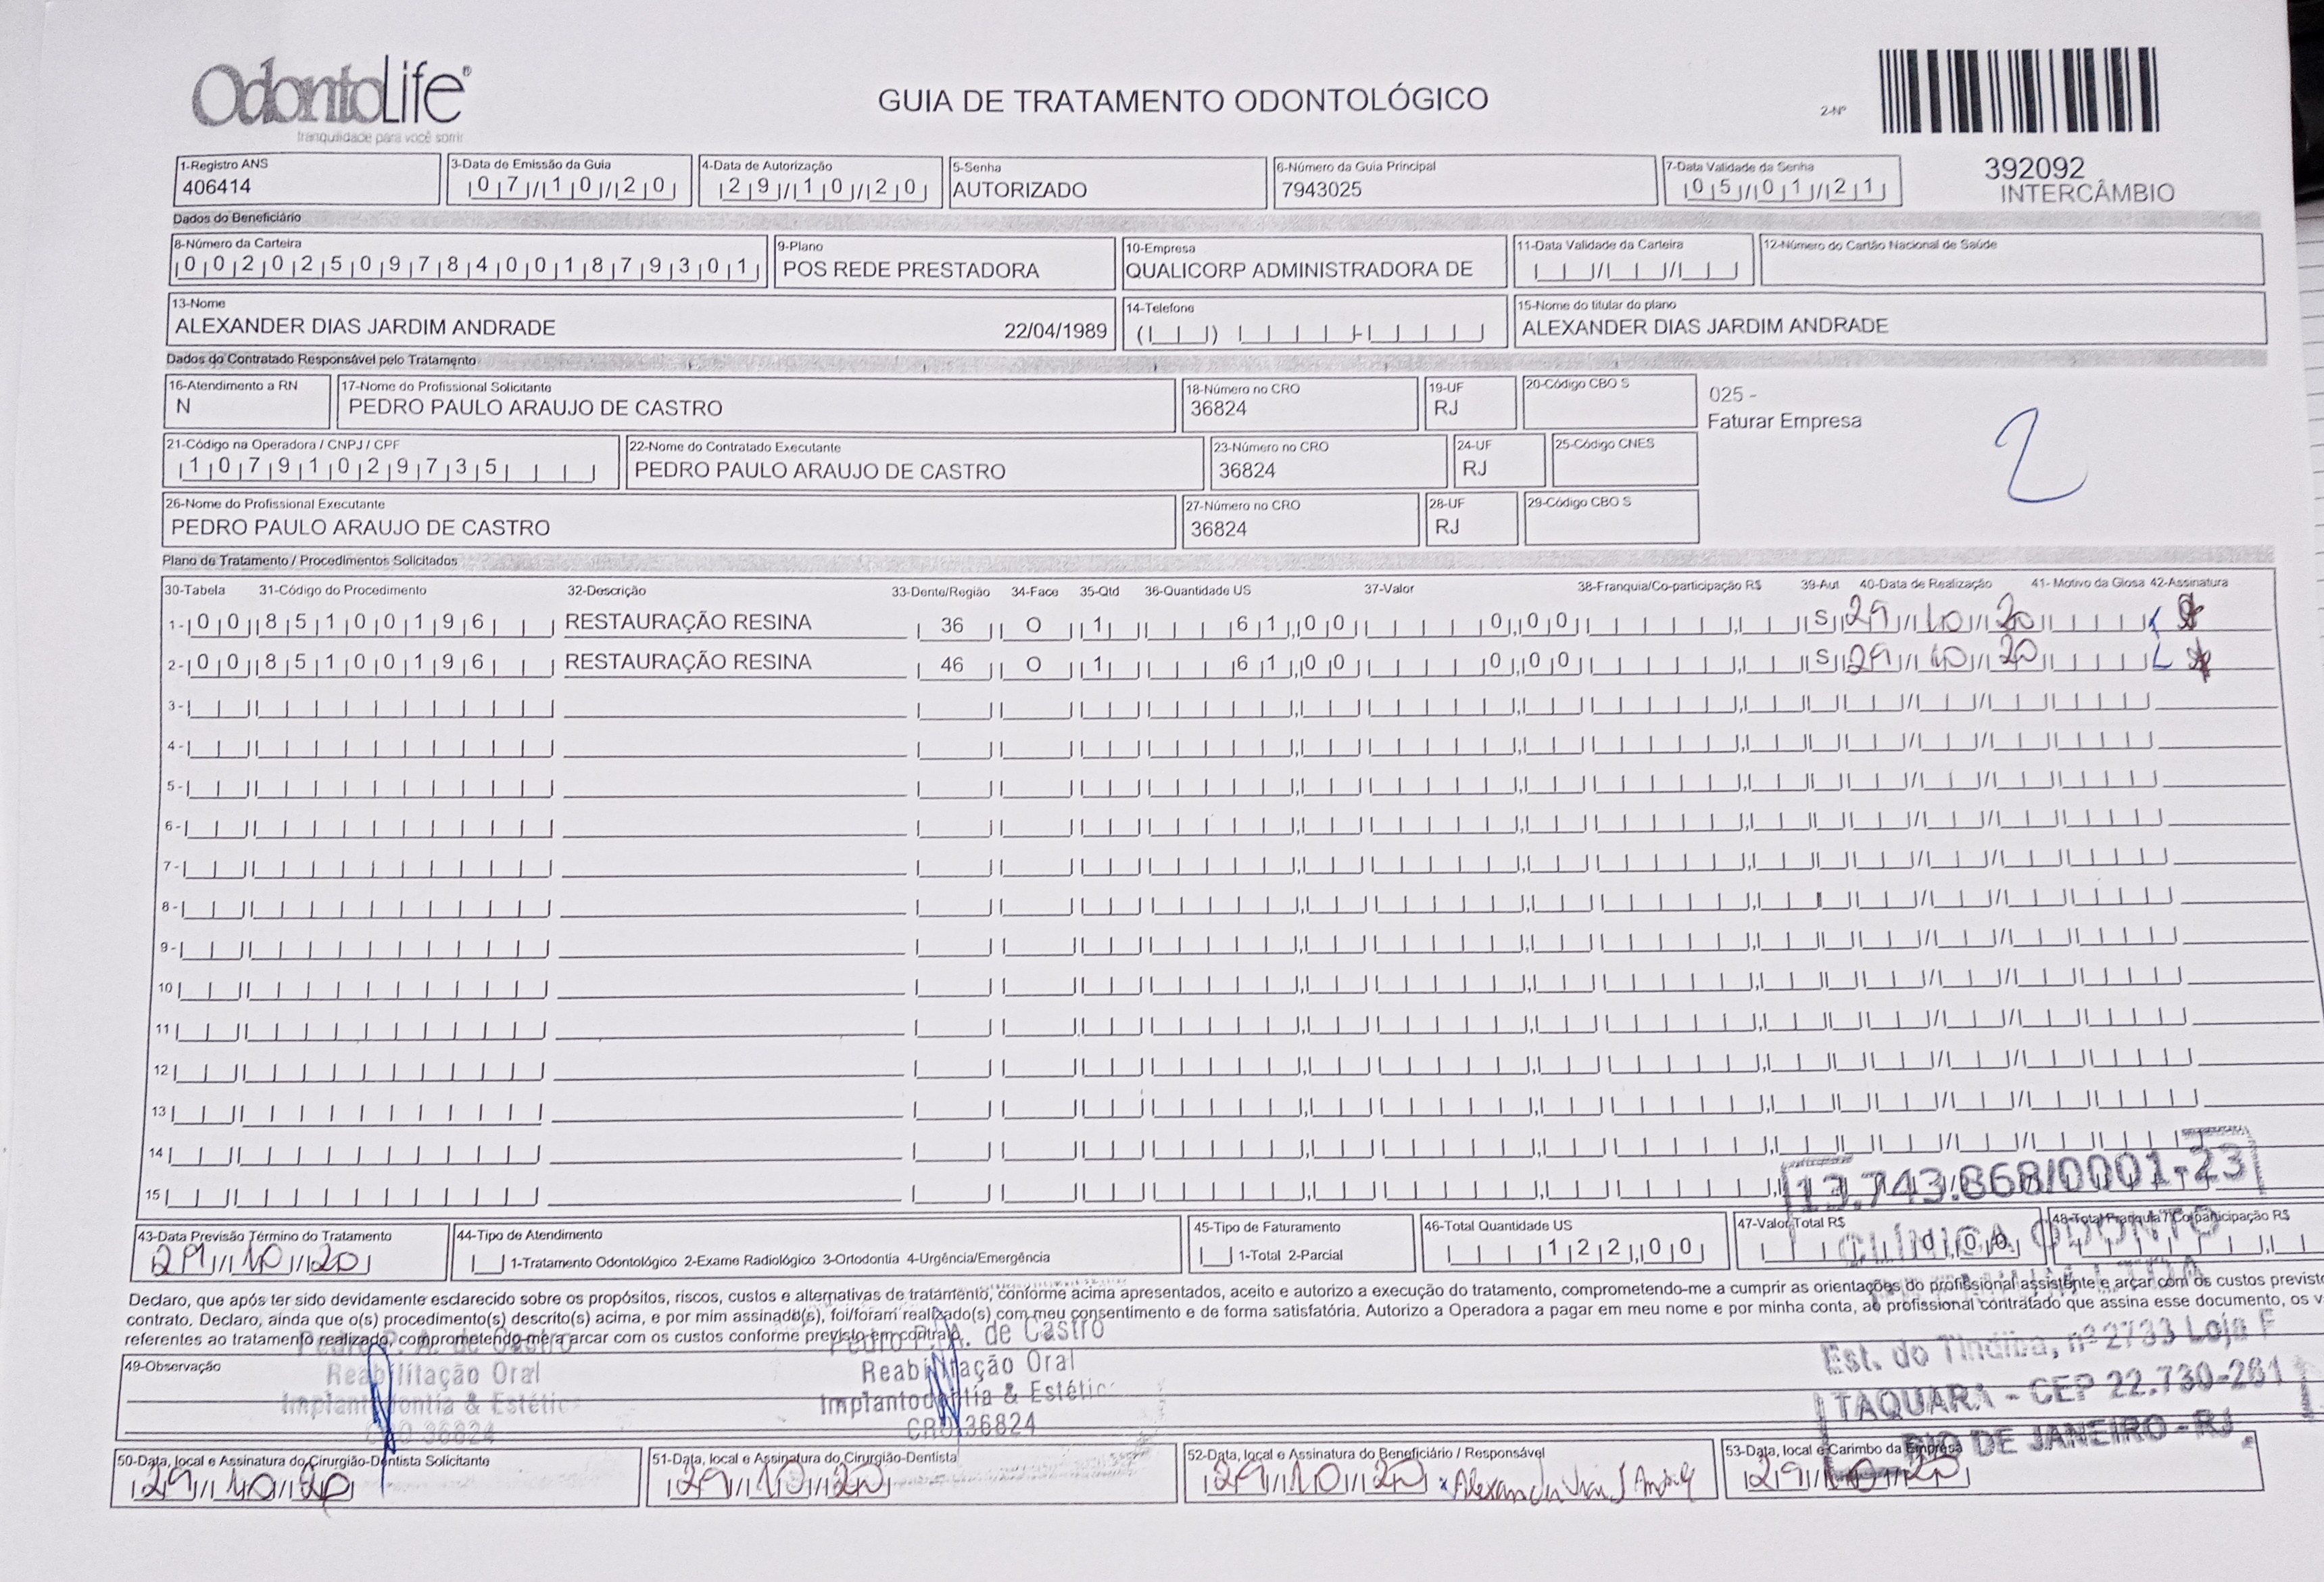 OdontoLife®
tranquilidade para você sorrir
GUIA DE TRATAMENTO ODONTOLÓGICO
2-Nº
392092
INTERCÂMBIO
1-Registro ANS
406414
3-Data de Emissão da Guia
07/10/20
4-Data de Autorização
29/10/20
5-Senha
AUTORIZADO
6-Número da Guia Principal
7943025
7-Data Validade da Senha
05/01/21
Dados do Beneficiário
8-Número da Carteira
00202509784001879301
9-Plano
POS REDE PRESTADORA
10-Empresa
QUALICORP ADMINISTRADORA DE
11-Data Validade da Carteira
12-Número do Cartão Nacional de Saúde
13-Nome
ALEXANDER DIAS JARDIM ANDRADE 22/04/1989
14-Telefone
15-Nome do titular do plano
ALEXANDER DIAS JARDIM ANDRADE
Dados do Contratado Responsável pelo Tratamento
16-Atendimento a RN
N
17-Nome do Profissional Solicitante
PEDRO PAULO ARAUJO DE CASTRO
18-Número no CRO
36824
19-UF
RJ
20-Código CBO S
025 -
Faturar Empresa
2
21-Código na Operadora / CNPJ / CPF
10791029735
22-Nome do Contratado Executante
PEDRO PAULO ARAUJO DE CASTRO
23-Número no CRO
36824
24-UF
RJ
25-Código CNES
26-Nome do Profissional Executante
PEDRO PAULO ARAUJO DE CASTRO
27-Número no CRO
36824
28-UF
RJ
29-Código CBO S
Plano de Tratamento / Procedimentos Solicitados
30-Tabela 31-Código do Procedimento 32-Descrição 33-Dente/Região 34-Face 35-Qtd 36-Quantidade US 37-Valor 38-Franquia/Co-participação R$ 39-Aut 40-Data de Realização 41- Motivo da Glosa 42-Assinatura
1- 00 85100196 RESTAURAÇÃO RESINA 36 O 1 61,00 0,00 S 29/10/20
2- 00 85100196 RESTAURAÇÃO RESINA 46 O 1 61,00 0,00 S 29/10/20
3-
4-
5-
6-
7-
8-
9-
10
11
12
13
14
15
13.743.868/0001-23
43-Data Previsão Término do Tratamento
29/10/20
44-Tipo de Atendimento
1-Tratamento Odontológico 2-Exame Radiológico 3-Ortodontia 4-Urgência/Emergência
45-Tipo de Faturamento
1-Total 2-Parcial
46-Total Quantidade US
122,00
47-Valor Total R$
0,00
48-Total Franquia / Co-participação R$
CLÍNICA ODONTO
Declaro, que após ter sido devidamente esclarecido sobre os propósitos, riscos, custos e alternativas de tratamento, conforme acima apresentados, aceito e autorizo a execução do tratamento, comprometendo-me a cumprir as orientações do profissional assistente e arcar com os custos previsto
contrato. Declaro, ainda que o(s) procedimento(s) descrito(s) acima, e por mim assinado(s), foi/foram realizado(s) com meu consentimento e de forma satisfatória. Autorizo a Operadora a pagar em meu nome e por minha conta, ao profissional contratado que assina esse documento, os v
referentes ao tratamento realizado, comprometendo-me a arcar com os custos conforme previsto em contrato.
49-Observação
Pedro P. A. de Castro
Reabilitação Oral
Implantodontia & Estétic
CRO 36824
Pedro P. A. de Castro
Reabilitação Oral
Implantodontia & Estétic
CRO 36824
Est. do Tindiba, nº 2733 Loja F
TAQUARA - CEP 22.730-261
RIO DE JANEIRO - RJ
50-Data, local e Assinatura do Cirurgião-Dentista Solicitante
29/10/20
51-Data, local e Assinatura do Cirurgião-Dentista
29/10/20
52-Data, local e Assinatura do Beneficiário / Responsável
29/10/20 x Alexander
53-Data, local e Carimbo da Empresa
29/10/20